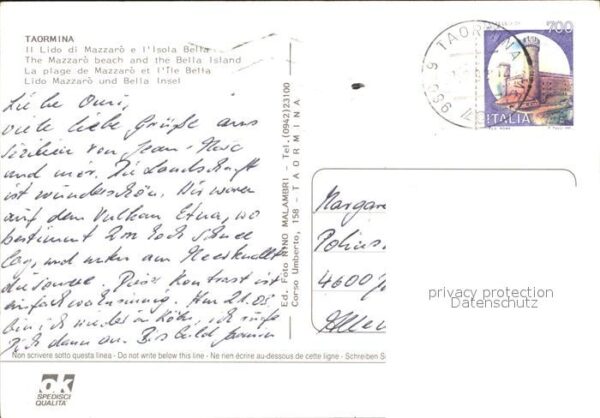 TAORMINA
Il Lido di Mazzarò e l'Isola Bella
The Mazzarò beach and the Bella Island
La plage de Mazzarò et l'Île Bella
Lido Mazzarò und Bella Insel
Liebe Omi,
viele liebe Grüße aus
Sizilien von Jean-Marc
und mir. Die Landschaft
ist wunderschön. Wir waren
auf dem Vulkan Etna, wo
bestimmt 2m hoch Schnee
lag, und unten am Meer knallt
die Sonne. Dieser Kontrast ist
einfach wahnsinnig. Am 21.05
bin ich wieder in Köln, ich rufe
Dich dann an. Bis bald
Ed. Foto RYNO MALAMBRI - Tel. (0942)23100
Corso Umberto, 158 - TAORMINA
700
ITALIA
TAORMINA
98039
Margar
4600
privacy protection
Datenschutz
Non scrivere sotto questa linea - Do not write below this line - Ne rien écrire au-dessous de cette ligne - Schreiben S
ok
SPEDISCI
QUALITÀ